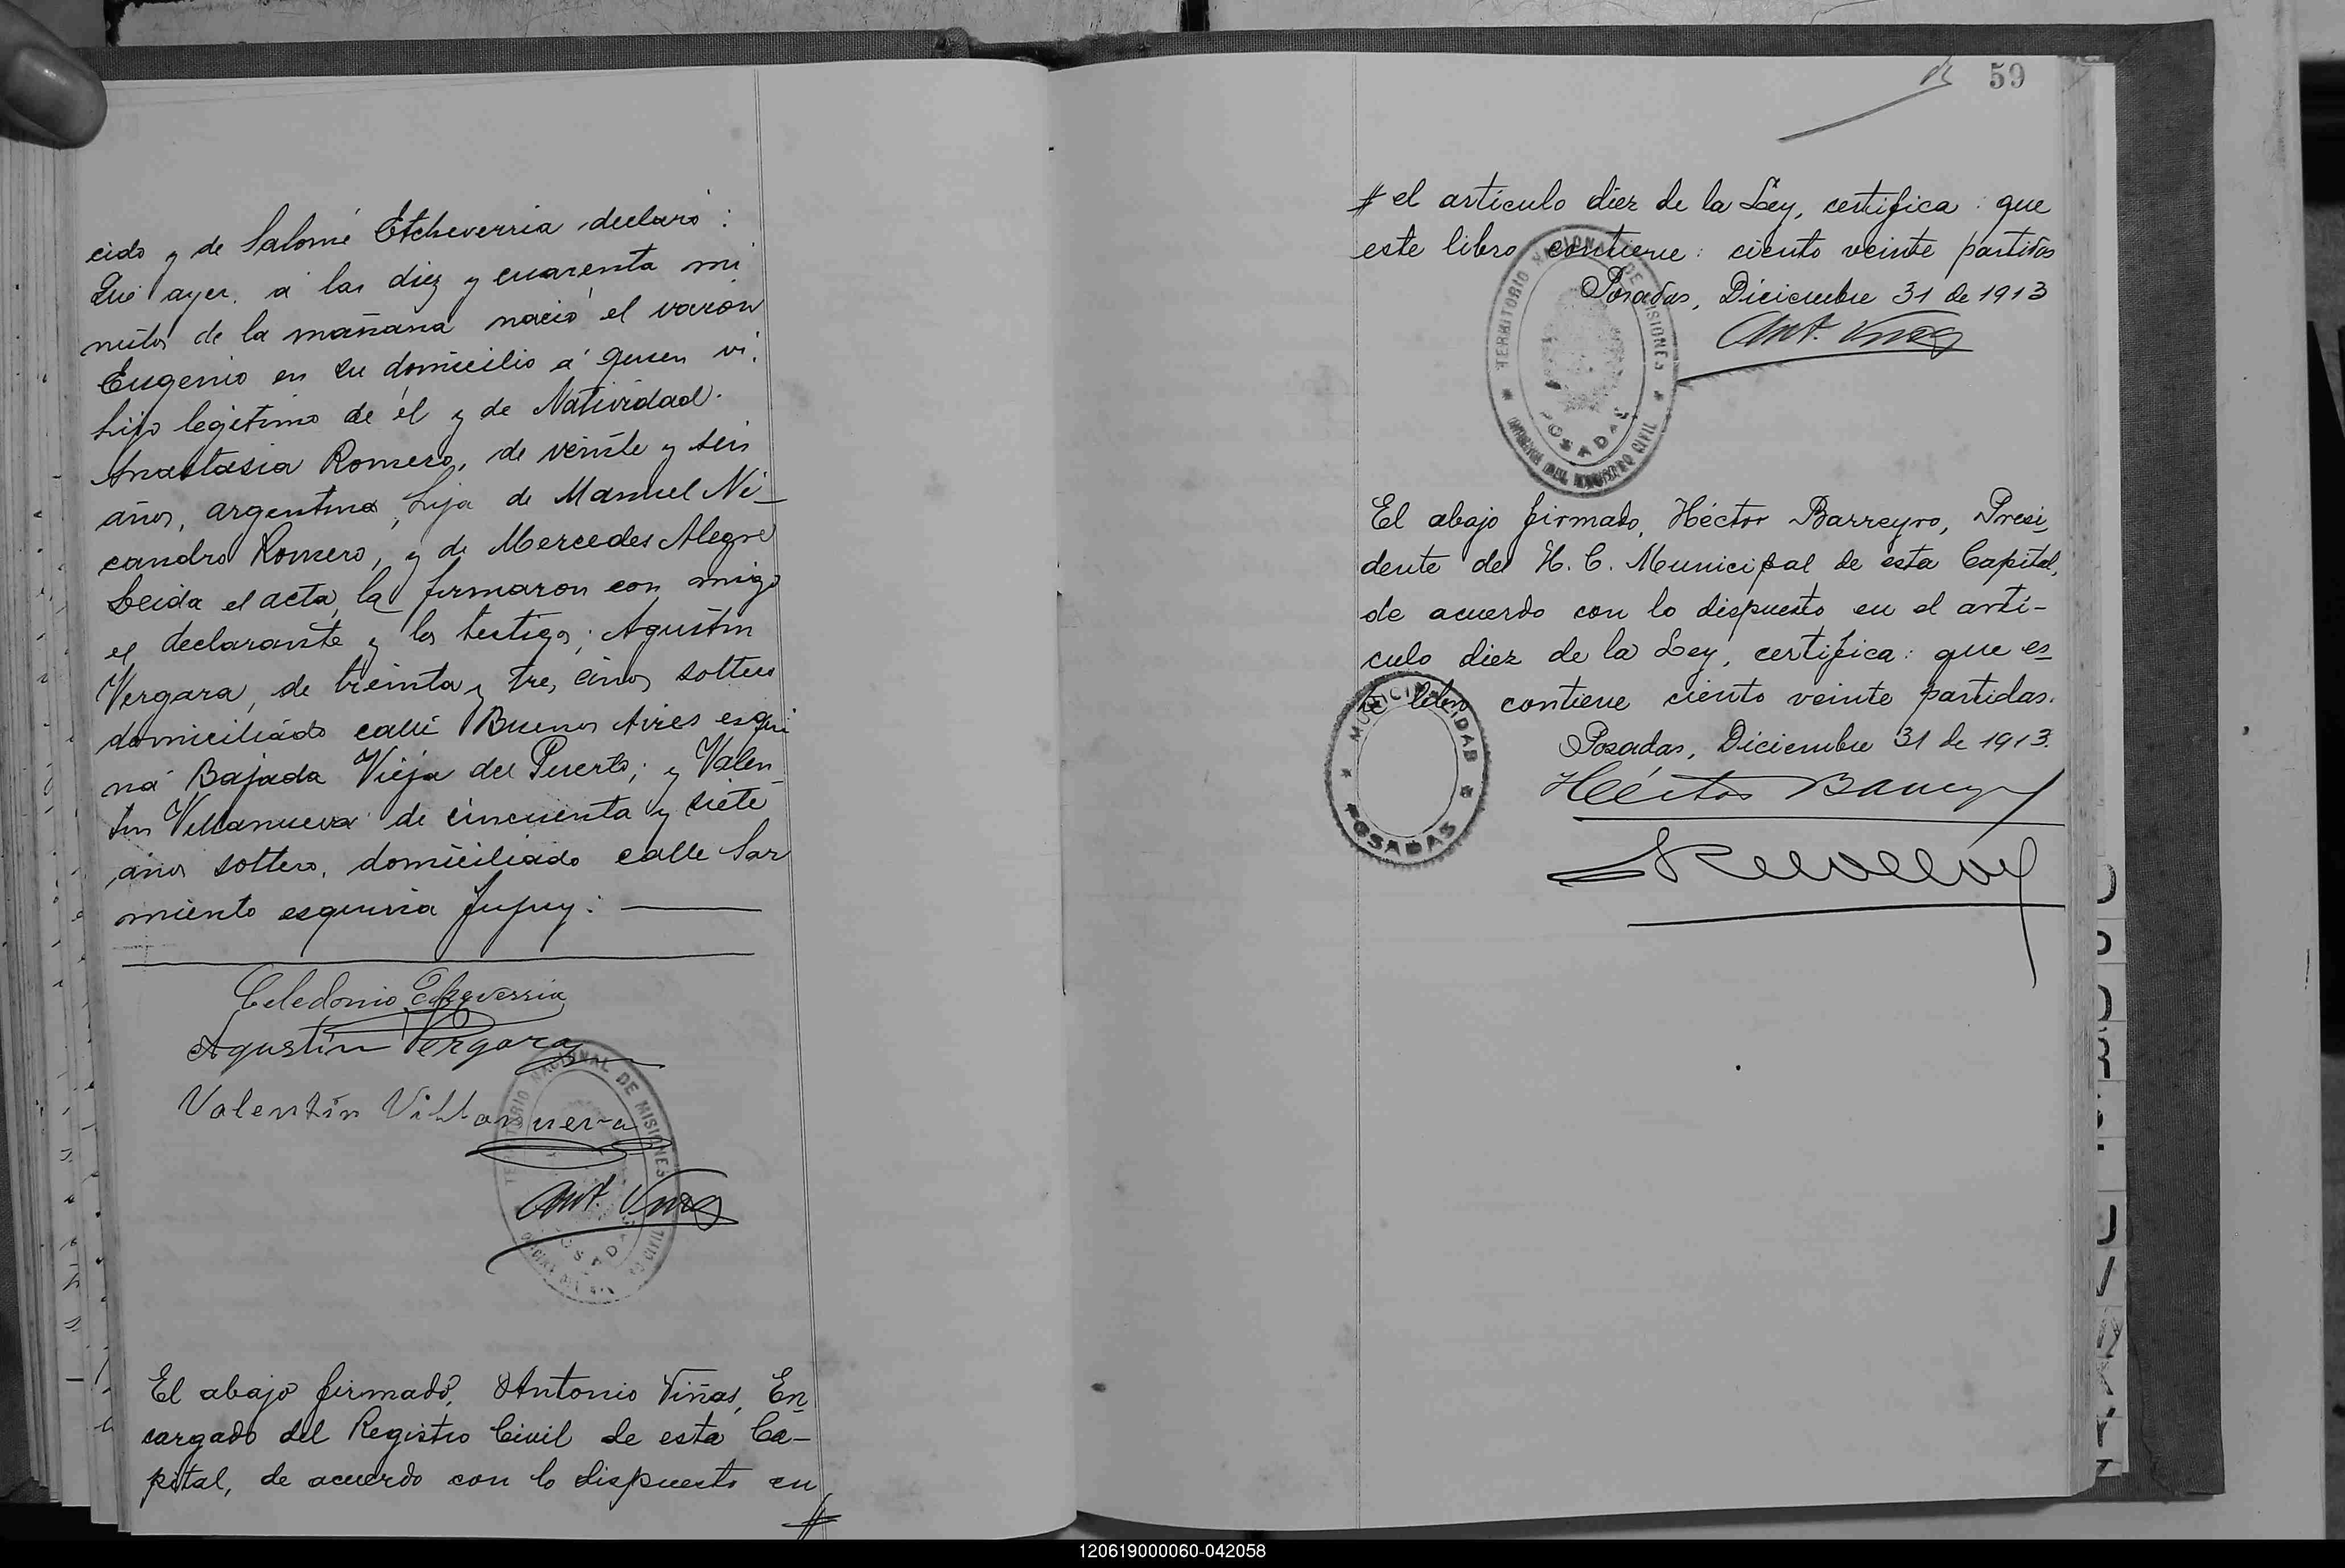 cido y de Salomé Etcheverria declaró:
Que ayer, a las diez y cuarenta mi
nutos de la mañana nació el varón
Eugenio en su domicilio á quien vi.
hijo legitimo de él y de Natividad
Anastasia Romero, de veinte y seis
años, argentina, hija de Manuel Ni-
candro Romero, y de Mercedes Alegre
Leida el acta, la firmaron con migo
el declarante y los testigos; Agustin
Vergara, de treinta y tres años soltero
domiciliado calle Buenos Aires esqui
na Bajada Vieja del Puerto; y Valen
tin Villanueva de cincuenta y siete
años soltero, domiciliado calle Sar
miento esquina Jujuy:
Celedonio Etcheverria
Agustin Vergara
Valentín Villanueva
TERRITORIO NACIONAL DE MISIONES
POSADAS
Ant. Viñas
El abajo firmado, Antonio Viñas, En
cargado del Registro Civil de esta Ca-
pital, de acuerdo con lo dispuesto en
#
59
# el artículo diez de la Ley, certifica: que
este libro contiene: ciento veinte partidas
Posadas, Diciembre 31 de 1913
Ant. Viñas
TERRITORIO NACIONAL DE MISIONES
POSADAS
DEL REGISTRO CIVIL
El abajo firmado, Héctor Barreyro, Presi
dente del H. C. Municipal de esta Capital,
de acuerdo con lo dispuesto en el artí-
culo diez de la Ley, certifica: que es
te libro contiene ciento veinte partidas.
Posadas, Diciembre 31 de 1913.
MUNICIPALIDAD
POSADAS
Héctor Barreyro
120619000060-042058